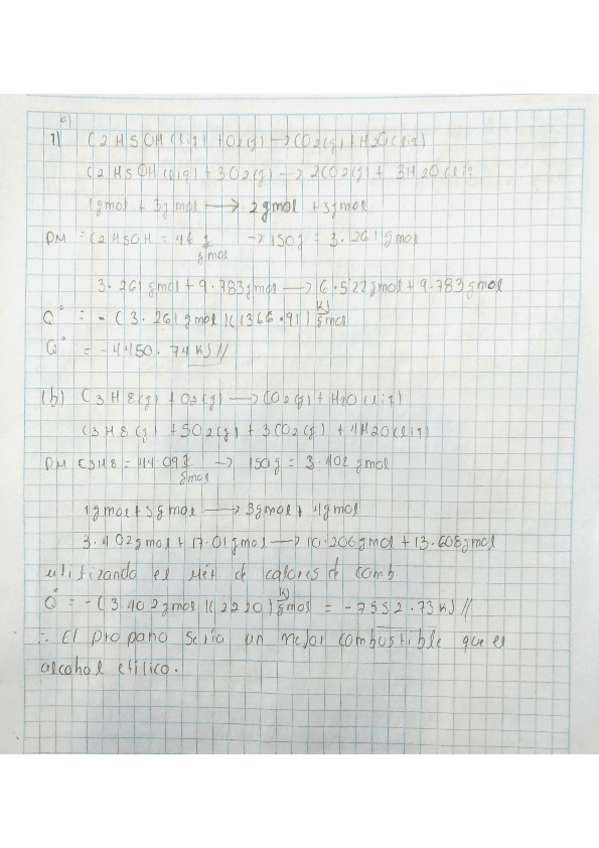 a)
1) C2H5OH(liq) + O2(g) → CO2(g) + H2O(liq)
C2H5OH(liq) + 3O2(g) → 2CO2(g) + 3H2O(liq)
1gmol + 3gmol → 2gmol + 3gmol
PM = C2H5OH = 46 g/gmol → 150g = 3.261gmol
3.261gmol + 9.783gmol → 6.522gmol + 9.783gmol
Q° = -(3.261gmol)(1366.91) KJ/gmol
Q° = -4450.74KJ//
(b) C3H8(g) + O2(g) → CO2(g) + H2O(liq)
C3H8(g) + 5O2(g) + 3CO2(g) + 4H2O(liq)
PM C3H8 = 44.09 g/gmol → 150g = 3.402 gmol
1gmol + 5gmol → 3gmol + 4gmol
3.402gmol + 17.01gmol → 10.206gmol + 13.608gmol
utilizando el Mét de calores de comb
Q° = -(3.402gmol)(2220) KJ/gmol = -7552.73KJ//
∴ El propano seria un mejor combustible que el
alcohol etilico.